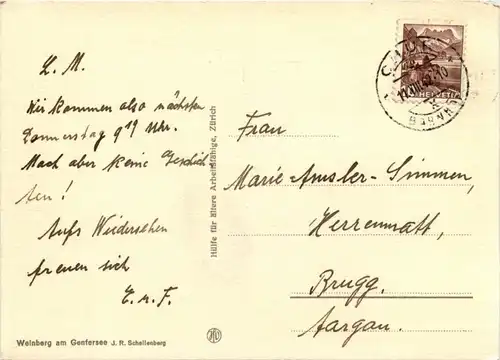 L. M.
Wir kommen also nächsten
Donnerstag 9 17 Uhr.
Mach aber keine Geschich
ten!
Aufs Wiedersehen
freuen sich
E. u. F.
Weinberg am Genfersee J. R. Schellenberg
Hülfe für ältere Arbeitsfähige, Zürich
Frau
Marie Amsler-Simmen,
Herrenmatt,
Brugg.
Aargau.
HELVETIA